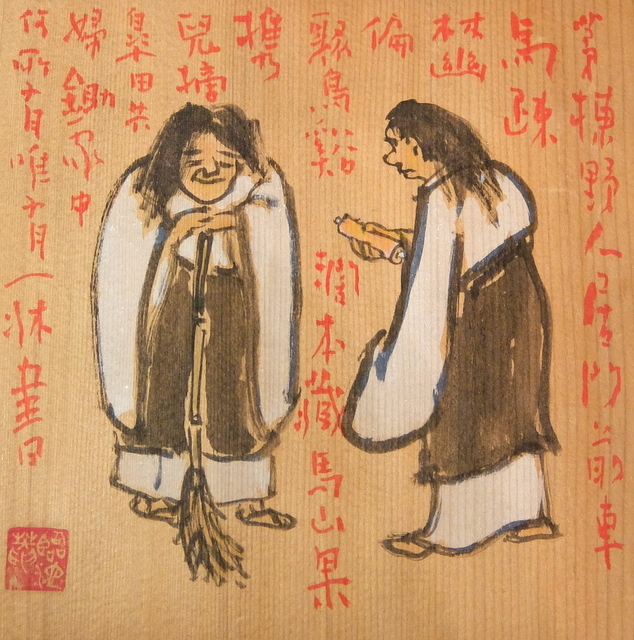 茅棟野人居門前車
馬疎
林幽
偏
聚鳥谿濶本藏魚山果
携
兒摘
皐田共
婦鋤家中
何所有唯有一牀書